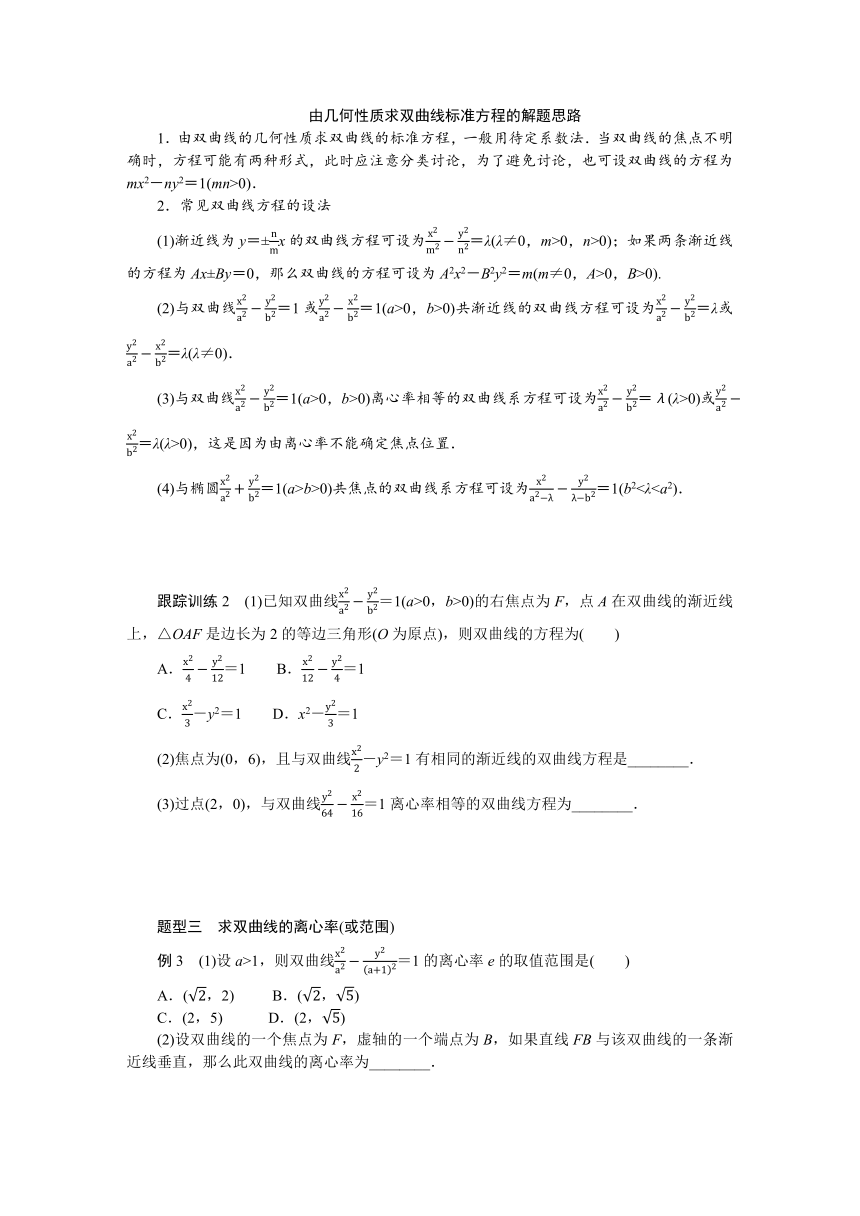 由几何性质求双曲线标准方程的解题思路
1.由双曲线的几何性质求双曲线的标准方程,一般用待定系数法.当双曲线的焦点不明
确时,方程可能有两种形式,此时应注意分类讨论,为了避免讨论,也可设双曲线的方程为
mx²-ny²=1(mn>0).
2.常见双曲线方程的设法
(1)渐近线为 y=±n/m x 的双曲线方程可设为x²/m²-y²/n²=λ(λ≠0,m>0,n>0);如果两条渐近线
的方程为 Ax±By=0,那么双曲线的方程可设为 A²x²-B²y²=m(m≠0,A>0,B>0).
(2)与双曲线x²/a²-y²/b²=1 或y²/a²-x²/b²=1(a>0,b>0)共渐近线的双曲线方程可设为x²/a²-y²/b²=λ或
y²/a²-x²/b²=λ(λ≠0).
(3)与双曲线x²/a²-y²/b²=1(a>0,b>0)离心率相等的双曲线系方程可设为x²/a²-y²/b²=λ(λ>0)或y²/a²-
x²/b²=λ(λ>0),这是因为由离心率不能确定焦点位置.
(4)与椭圆x²/a²+y²/b²=1(a>b>0)共焦点的双曲线系方程可设为x²/(a²-λ)-y²/(λ-b²)=1(b²<λ<a²).
跟踪训练 2 (1)已知双曲线x²/a²-y²/b²=1(a>0,b>0)的右焦点为 F,点 A 在双曲线的渐近线
上,△OAF 是边长为 2 的等边三角形(O 为原点),则双曲线的方程为( )
A.x²/4-y²/12=1 B.x²/12-y²/4=1
C.x²/3-y²=1 D.x²-y²/3=1
(2)焦点为(0,6),且与双曲线x²/2-y²=1 有相同的渐近线的双曲线方程是________.
(3)过点(2,0),与双曲线y²/64-x²/16=1 离心率相等的双曲线方程为________.
题型三 求双曲线的离心率(或范围)
例 3 (1)设 a>1,则双曲线x²/a²-y²/(a+1)²=1 的离心率 e 的取值范围是( )
A.(√2,2) B.(√2,√5)
C.(2,5) D.(2,√5)
(2)设双曲线的一个焦点为 F,虚轴的一个端点为 B,如果直线 FB 与该双曲线的一条渐
近线垂直,那么此双曲线的离心率为________.